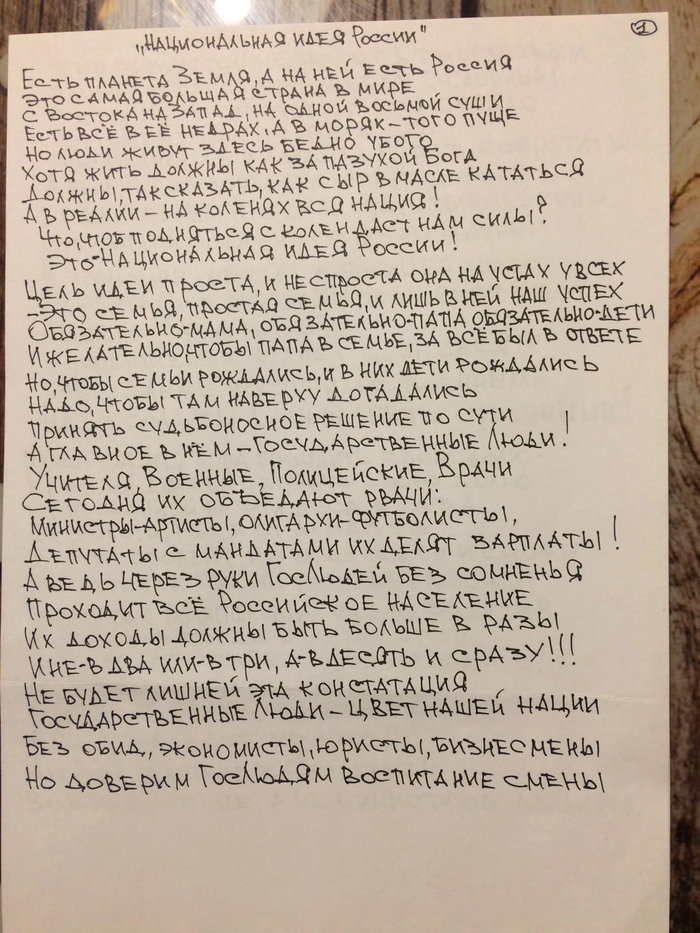 1
„Национальная идея России"
Есть планета Земля, а на ней есть Россия
Это самая большая страна в мире
С Востока на Запад, на одной восьмой суши
Есть всё в её недрах, а в морях – того пуще
Но люди живут здесь бедно убого
Хотя жить должны как за пазухой Бога
Должны, так сказать, как сыр в масле кататься
А в реалии – на коленях вся нация!
Что, чтоб подняться с колен даст нам силы?
Это – Национальная идея России!
Цель идеи проста, и неспроста она на устах у всех
-Это семья, простая семья, и лишь в ней наш успех
Обязательно-мама, обязательно-папа обязательно-дети
И желательно, чтобы папа в семье, за всё был в ответе
Но, чтобы семьи рождались, и в них дети рождались
Надо, чтобы там наверху догадались
Принять судьбоносное решение по сути
А главное в нём – Государственные Люди!
Учителя, Военные, Полицейские, Врачи
Сегодня их объедают рвачи:
Министры-артисты, олигархи-футболисты,
Депутаты с мандатами их делят зарплаты!
А ведь через руки ГосЛюдей без сомненья
Проходит всё Российское население
Их доходы должны быть больше в разы
И не-в два или-в три, а-в десять и сразу!!!
Не будет лишней эта констатация
Государственные Люди – цвет нашей нации
Без обид, экономисты, юристы, бизнесмены
Но доверим ГосЛюдям воспитание смены